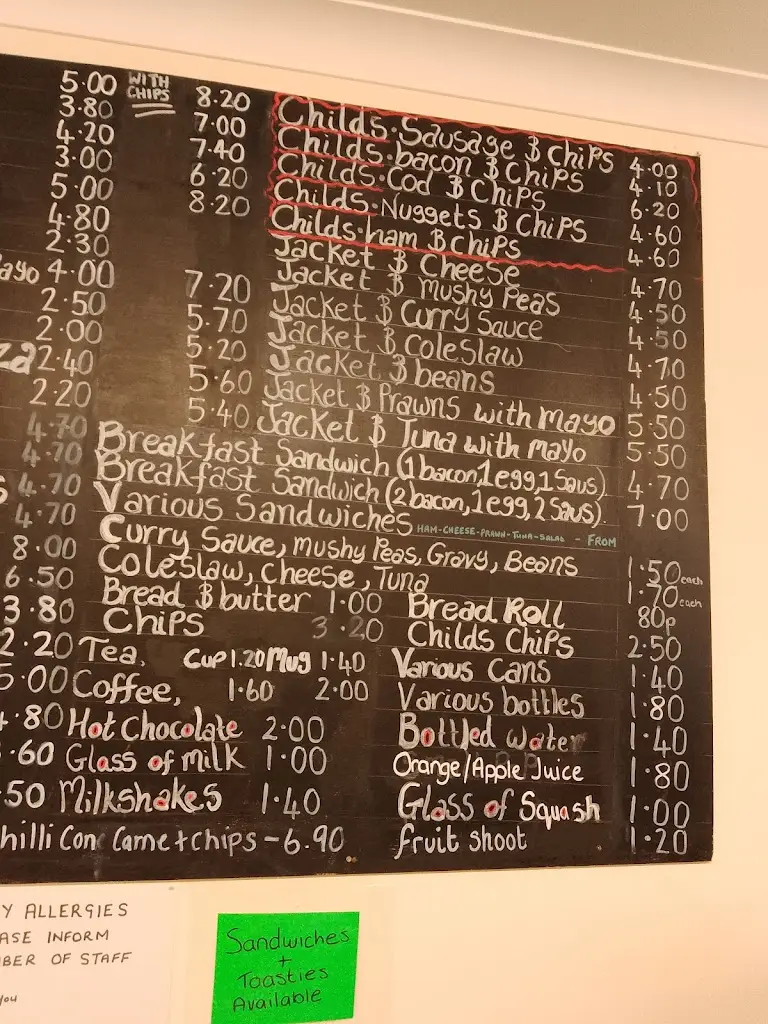 5.00 WITH CHIPS 8.20 Childs. Sausage & Chips 4.00
3.80 7.00 Childs. bacon & Chips 4.10
4.20 7.40 Childs. Cod & Chips 6.20
3.00 6.20 Childs. Nuggets & Chips 4.60
5.00 8.20 Childs. ham & Chips 4.60
4.80 Jacket & Cheese 4.70
2.30 Jacket & Mushy Peas 4.50
ayo 4.00 7.20 Jacket & Curry Sauce 4.50
2.50 5.70 Jacket & Coleslaw 4.70
2.00 5.20 Jacket & beans 4.50
za 2.40 5.60 Jacket & Prawns with Mayo 5.50
2.20 5.40 Jacket & Tuna with Mayo 5.50
4.70 Breakfast Sandwich (1 bacon, 1 egg, 1 Saus) 4.70
4.70 Breakfast Sandwich (2 bacon, 1 egg, 2 Saus) 7.00
s 4.70 Various Sandwiches HAM-CHEESE-PRAWN-TUNA-SALAD - FROM
4.70 Curry Sauce, Mushy Peas, Gravy, Beans 1.50 each
8.00 Coleslaw, Cheese, Tuna 1.70 each
6.50 Bread & butter 1.00 Bread Roll 80p
3.80 Chips 3.20 Childs Chips 2.50
2.20 Tea. Cup 1.20 Mug 1.40 Various Cans 1.40
5.00 Coffee, 1.60 2.00 Various bottles 1.80
4.80 Hot Chocolate 2.00 Bottled Water 1.40
.60 Glass of Milk 1.00 Orange/Apple Juice 1.80
.50 Milkshakes 1.40 Glass of Squash 1.00
hilli Con Carne + chips - 6.90 fruit shoot 1.20
Y ALLERGIES
ASE INFORM
BER OF STAFF
you
Sandwiches
+
Toasties
Available